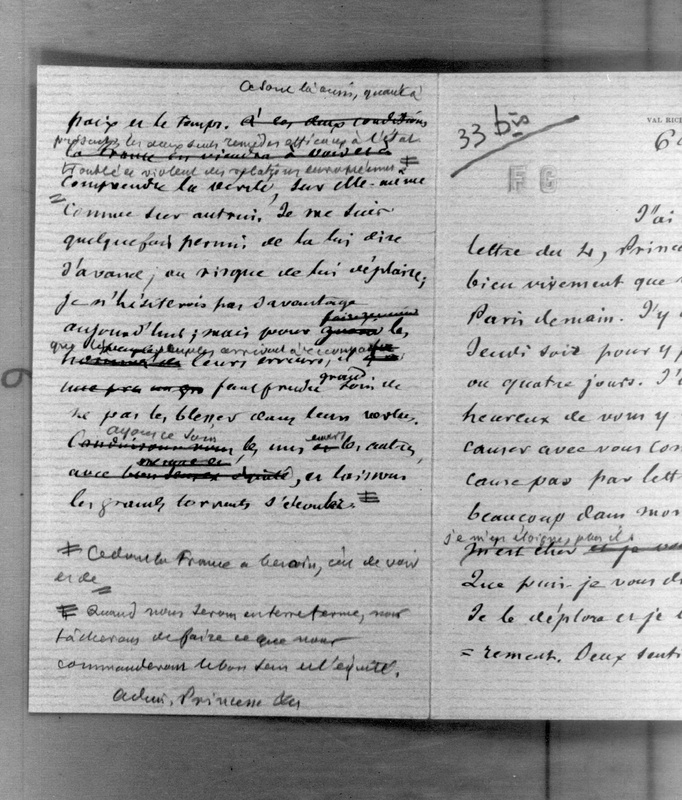 ce sont là aussi, quant à
paix et le temps. A ces deux conditions
présent, les deux seuls remèdes efficaces à l'état
la France en viendra à voir et à
troublé et violent des relations européennes
comprendre la vérité, sur elle-même
comme sur autrui. Je me suis
quelquefois permis de la lui dire
d'avance, au risque de lui déplaire;
je n'hésiterois pas davantage
aujourd'hui; mais pour
que les peuples arrivent à reconnaître les
leurs erreurs, il
faut prendre grand soin de
ne pas les blesser dans leurs
ayons ce soin
Conduisons nous les uns envers les autres,
avec bon sens et équité, et laissons
les grands torrents s'écouler.
Ce dont la France a besoin, c'est de voir
et de
Quand nous serons en terre ferme, nous
tâcherons de faire ce que nous
commanderont le bon sens et l'équité.
Adieu, Princesse
33 bis
VAL RIC
FG
J'ai
lettre du 4, Prince
bien vivement que
Paris demain. J'y
Jeudi soir pour y
ou quatre jours. J'
heureux de vous y
causer avec vous
cause pas par lett
beaucoup dans mon
je m'en éloigne plus il
m'est cher et je
Que puis-je vous d
Je le déplore et je
= rement. Deux senti